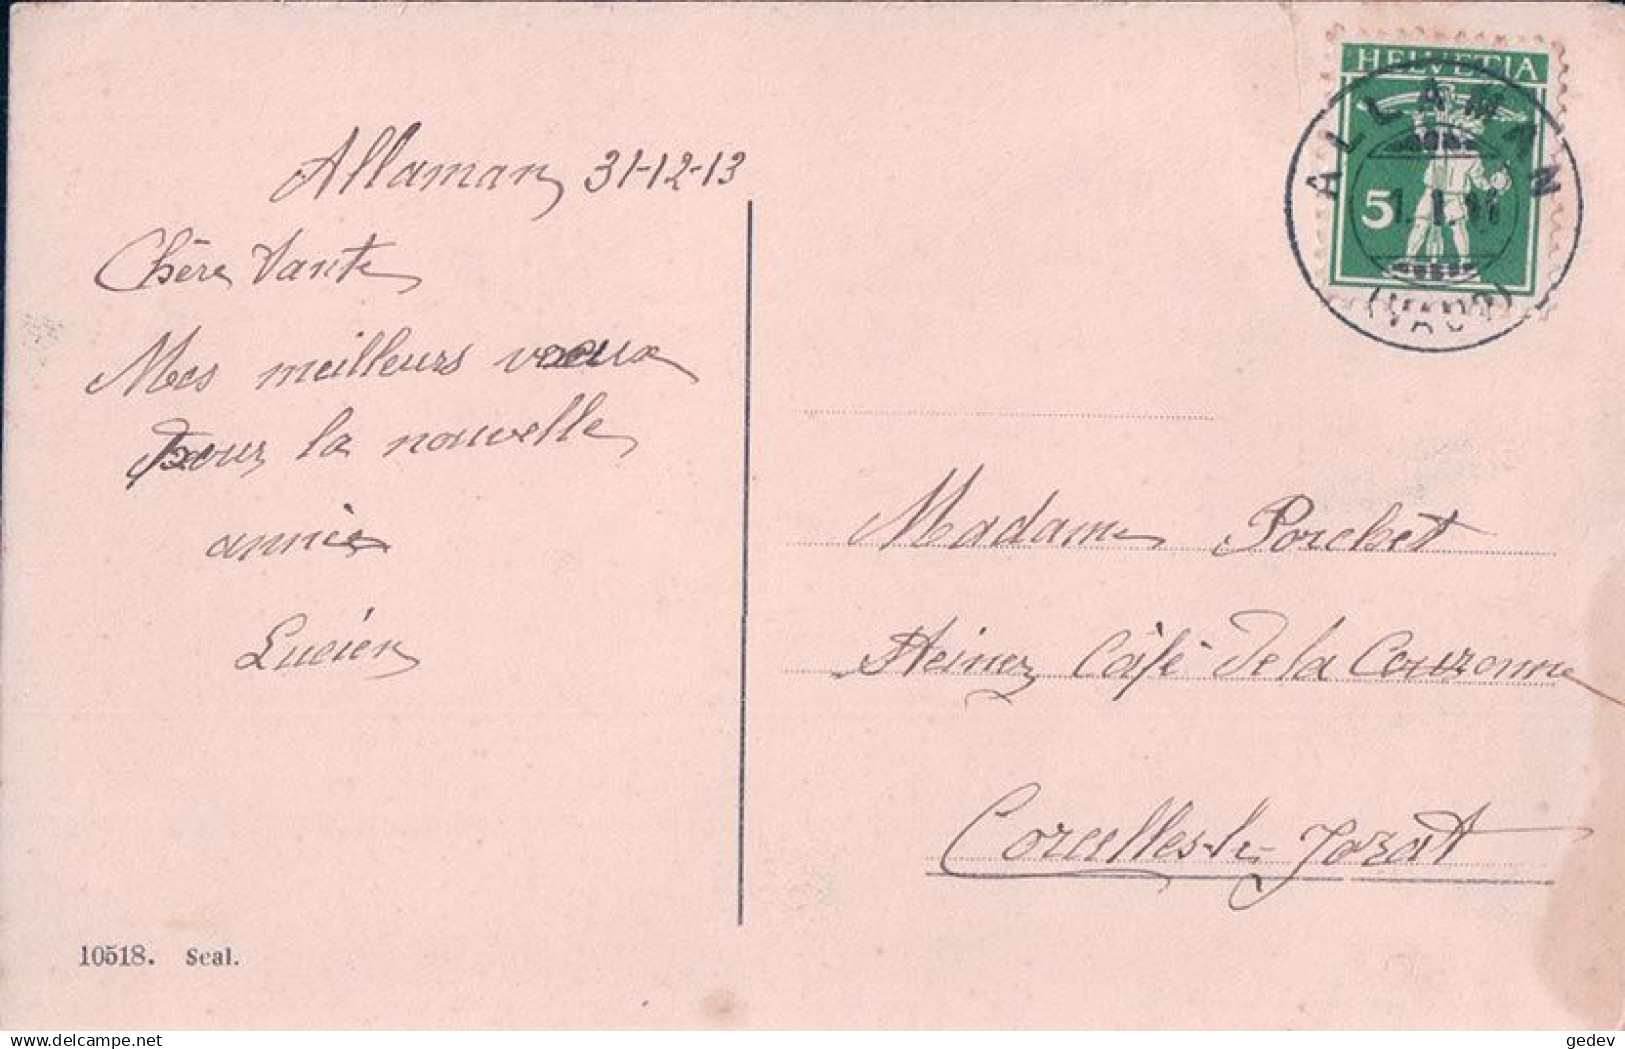 HELVETIA
ALLAMAN
5
1. I. 14
(VAUD)
Allaman 31-12-13
Chère Tante
Mes meilleurs voeux
pour la nouvelle
année
Lucien
Madame Porchet
Steiner Café de la Couronne
Corcelles-le-Jorat
10518. Scal.
gedev